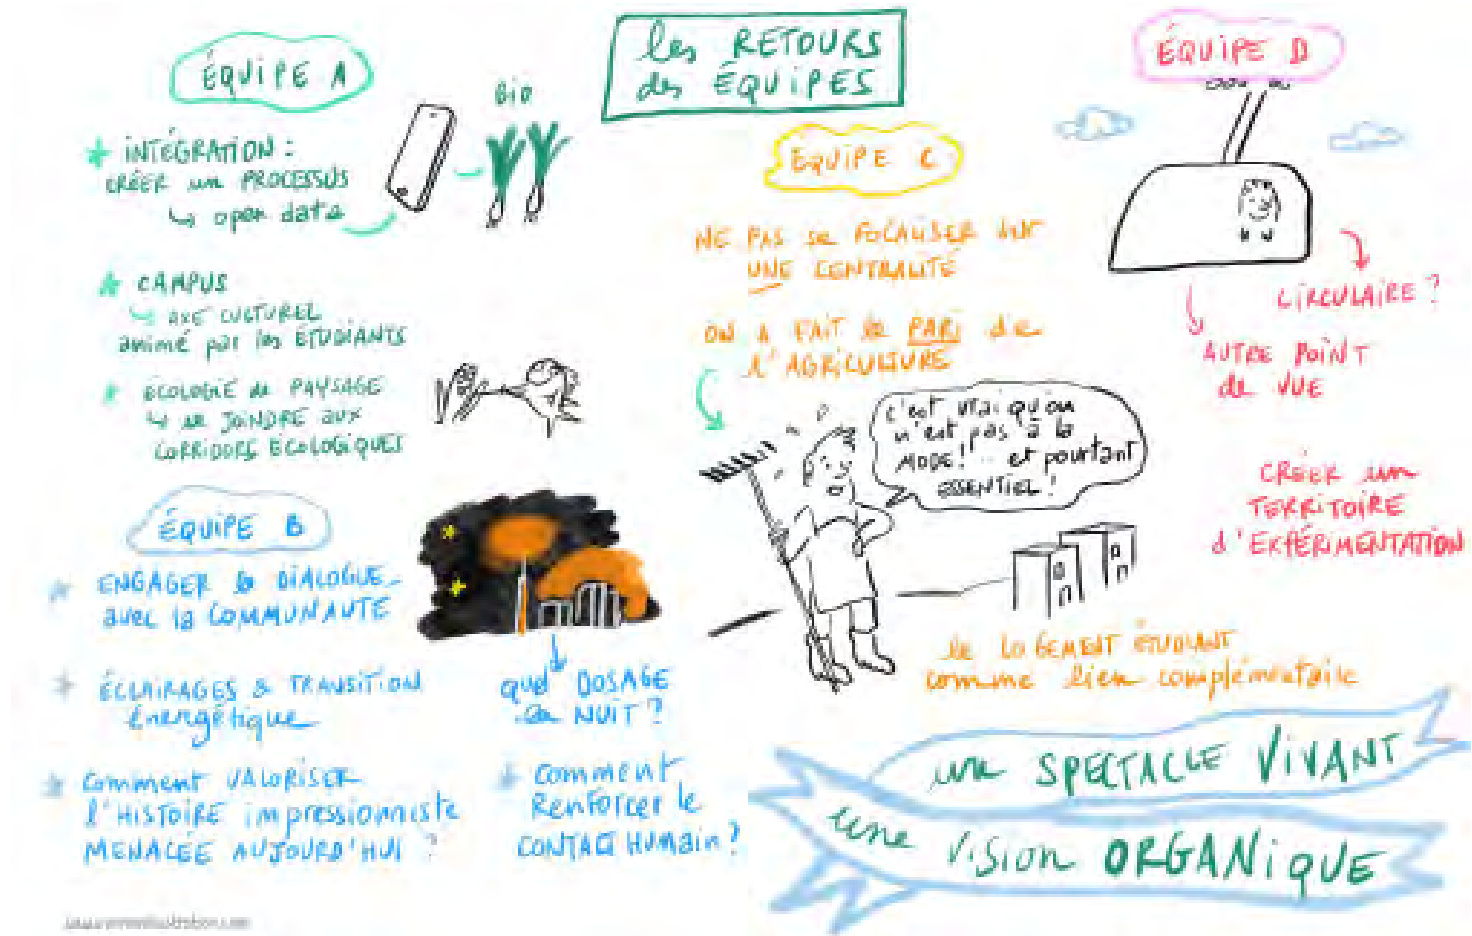 les RETOURS
des ÉQUIPES
ÉQUIPE A
BIO
* INTÉGRATION :
CRÉER un PROCESSUS
↳ open data
* CAMPUS
↳ AXE CULTUREL
animé par les ÉTUDIANTS
* ÉCOLOGIE du PAYSAGE
↳ se JOINDRE aux
CORRIDORS ÉCOLOGIQUES
ÉQUIPE B
* ENGAGER le DIALOGUE
avec la COMMUNAUTÉ
* ÉCLAIRAGES & TRANSITION
énergétique
* Comment VALORISER
l'HISTOIRE impressionniste
MENACÉE AUJOURD'HUI ?
quel DOSAGE
de NUIT ?
* Comment
Renforcer le
CONTACT Humain ?
ÉQUIPE C
NE PAS se FOCALISER sur
UNE CENTRALITÉ
ON A FAIT le PARI de
l'AGRICULTURE
C'est vrai qu'on
n'est pas à la
MODE ! ... et pourtant
ESSENTIEL !
le LOGEMENT ÉTUDIANT
comme lien complémentaire
ÉQUIPE D
CIRCULAIRE ?
AUTRE POINT
de VUE
CRÉER un
TERRITOIRE
d'EXPÉRIMENTATION
un SPECTACLE VIVANT
une vision ORGANIQUE